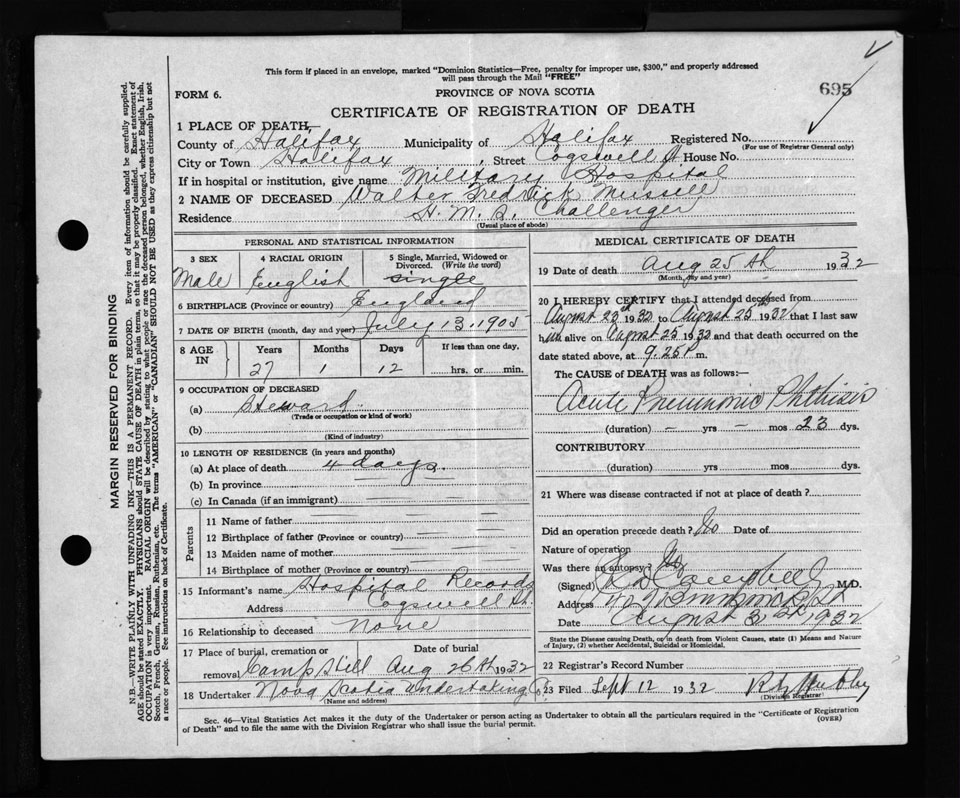 This form if placed in an envelope, marked "Dominion Statistics—Free, penalty for improper use, $300," and properly addressed
will pass through the Mail "FREE"
695
FORM 6.
PROVINCE OF NOVA SCOTIA
CERTIFICATE OF REGISTRATION OF DEATH
1 PLACE OF DEATH,—
County of Halifax Municipality of Halifax Registered No.
(For use of Registrar General only)
City or Town Halifax, Street Cogswell St House No.
If in hospital or institution, give name Military Hospital
2 NAME OF DECEASED Walter Fredrick Mussell
Residence H. M. S. Challenger
(Usual place of abode)
PERSONAL AND STATISTICAL INFORMATION
3 SEX 4 RACIAL ORIGIN 5 Single, Married, Widowed or
Divorced. (Write the word)
Male English Single
6 BIRTHPLACE (Province or country) England
7 DATE OF BIRTH (month, day and year) July 13, 1905
8 AGE IN Years Months Days If less than one day,
27 1 12 hrs. or min.
9 OCCUPATION OF DECEASED
(a) Steward
(Trade or occupation or kind of work)
(b)
(Kind of industry)
10 LENGTH OF RESIDENCE (in years and months)
(a) At place of death 4 days.
(b) In province
(c) In Canada (if an immigrant)
Parents
11 Name of father
12 Birthplace of father (Province or country)
13 Maiden name of mother
14 Birthplace of mother (Province or country)
15 Informant's name Hospital Records
Address Cogswell St.
16 Relationship to deceased None
17 Place of burial, cremation or removal Date of burial
Camp Hill Aug 26th 1932
18 Undertaker Nova Scotia Undertaking Co
(Name and address)
MEDICAL CERTIFICATE OF DEATH
19 Date of death Aug 25th 1932
(Month, day and year)
20 I HEREBY CERTIFY that I attended deceased from
August 1932 to August 25th 1932 that I last saw
him alive on August 25 1932 and that death occurred on the
date stated above, at 9.25 P m.
The CAUSE of DEATH was as follows:—
Acute Pneumonic Phthisis
(duration) — yrs — mos 23 dys.
CONTRIBUTORY
(duration) yrs mos dys.
21 Where was disease contracted if not at place of death?
Did an operation precede death? No Date of
Nature of operation
Was there an autopsy? No
(Signed) Campbell M.D.
Address
Date August 1932
State the Disease causing Death, or in death from Violent Causes, state (1) Means and Nature
of Injury, (2) whether Accidental, Suicidal or Homicidal.
22 Registrar's Record Number
23 Filed Sept 12 1932
(Division Registrar)
Sec. 46—Vital Statistics Act makes it the duty of the Undertaker or person acting as Undertaker to obtain all the particulars required in the "Certificate of Registration
of Death" and to file the same with the Division Registrar who shall issue the burial permit. (OVER)
MARGIN RESERVED FOR BINDING
N.B.—WRITE PLAINLY WITH UNFADING INK—THIS IS A PERMANENT RECORD. Every item of information should be carefully supplied.
AGE should be stated EXACTLY. PHYSICIANS should STATE CAUSE OF DEATH in plain terms, so that it may be properly classified. Exact statement of
OCCUPATION is very important. RACIAL ORIGIN will be described by stating to what people or race the deceased person belonged, whether English, Irish,
Scotch, French, German, Russian, Ruthenian, etc. The terms "AMERICAN" or "CANADIAN" SHOULD NOT BE USED as they express citizenship but not
a race or people. See instructions on back of Certificate.